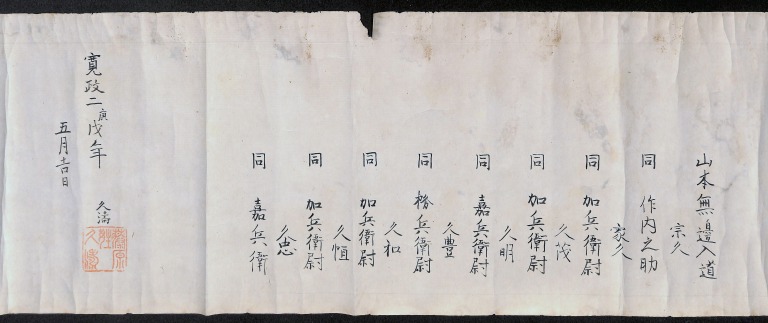 山本無邊入道
宗久
同 作内之助
家久
同 加兵衛尉
久茂
同 加兵衛尉
久明
同 嘉兵衛尉
久豊
同 勝兵衛尉
久和
同 加兵衛尉
久恒
同 加兵衛尉
久忠
同 嘉兵衛
寛政二庚戌年
五月吉日
久濤
藤原
久濤